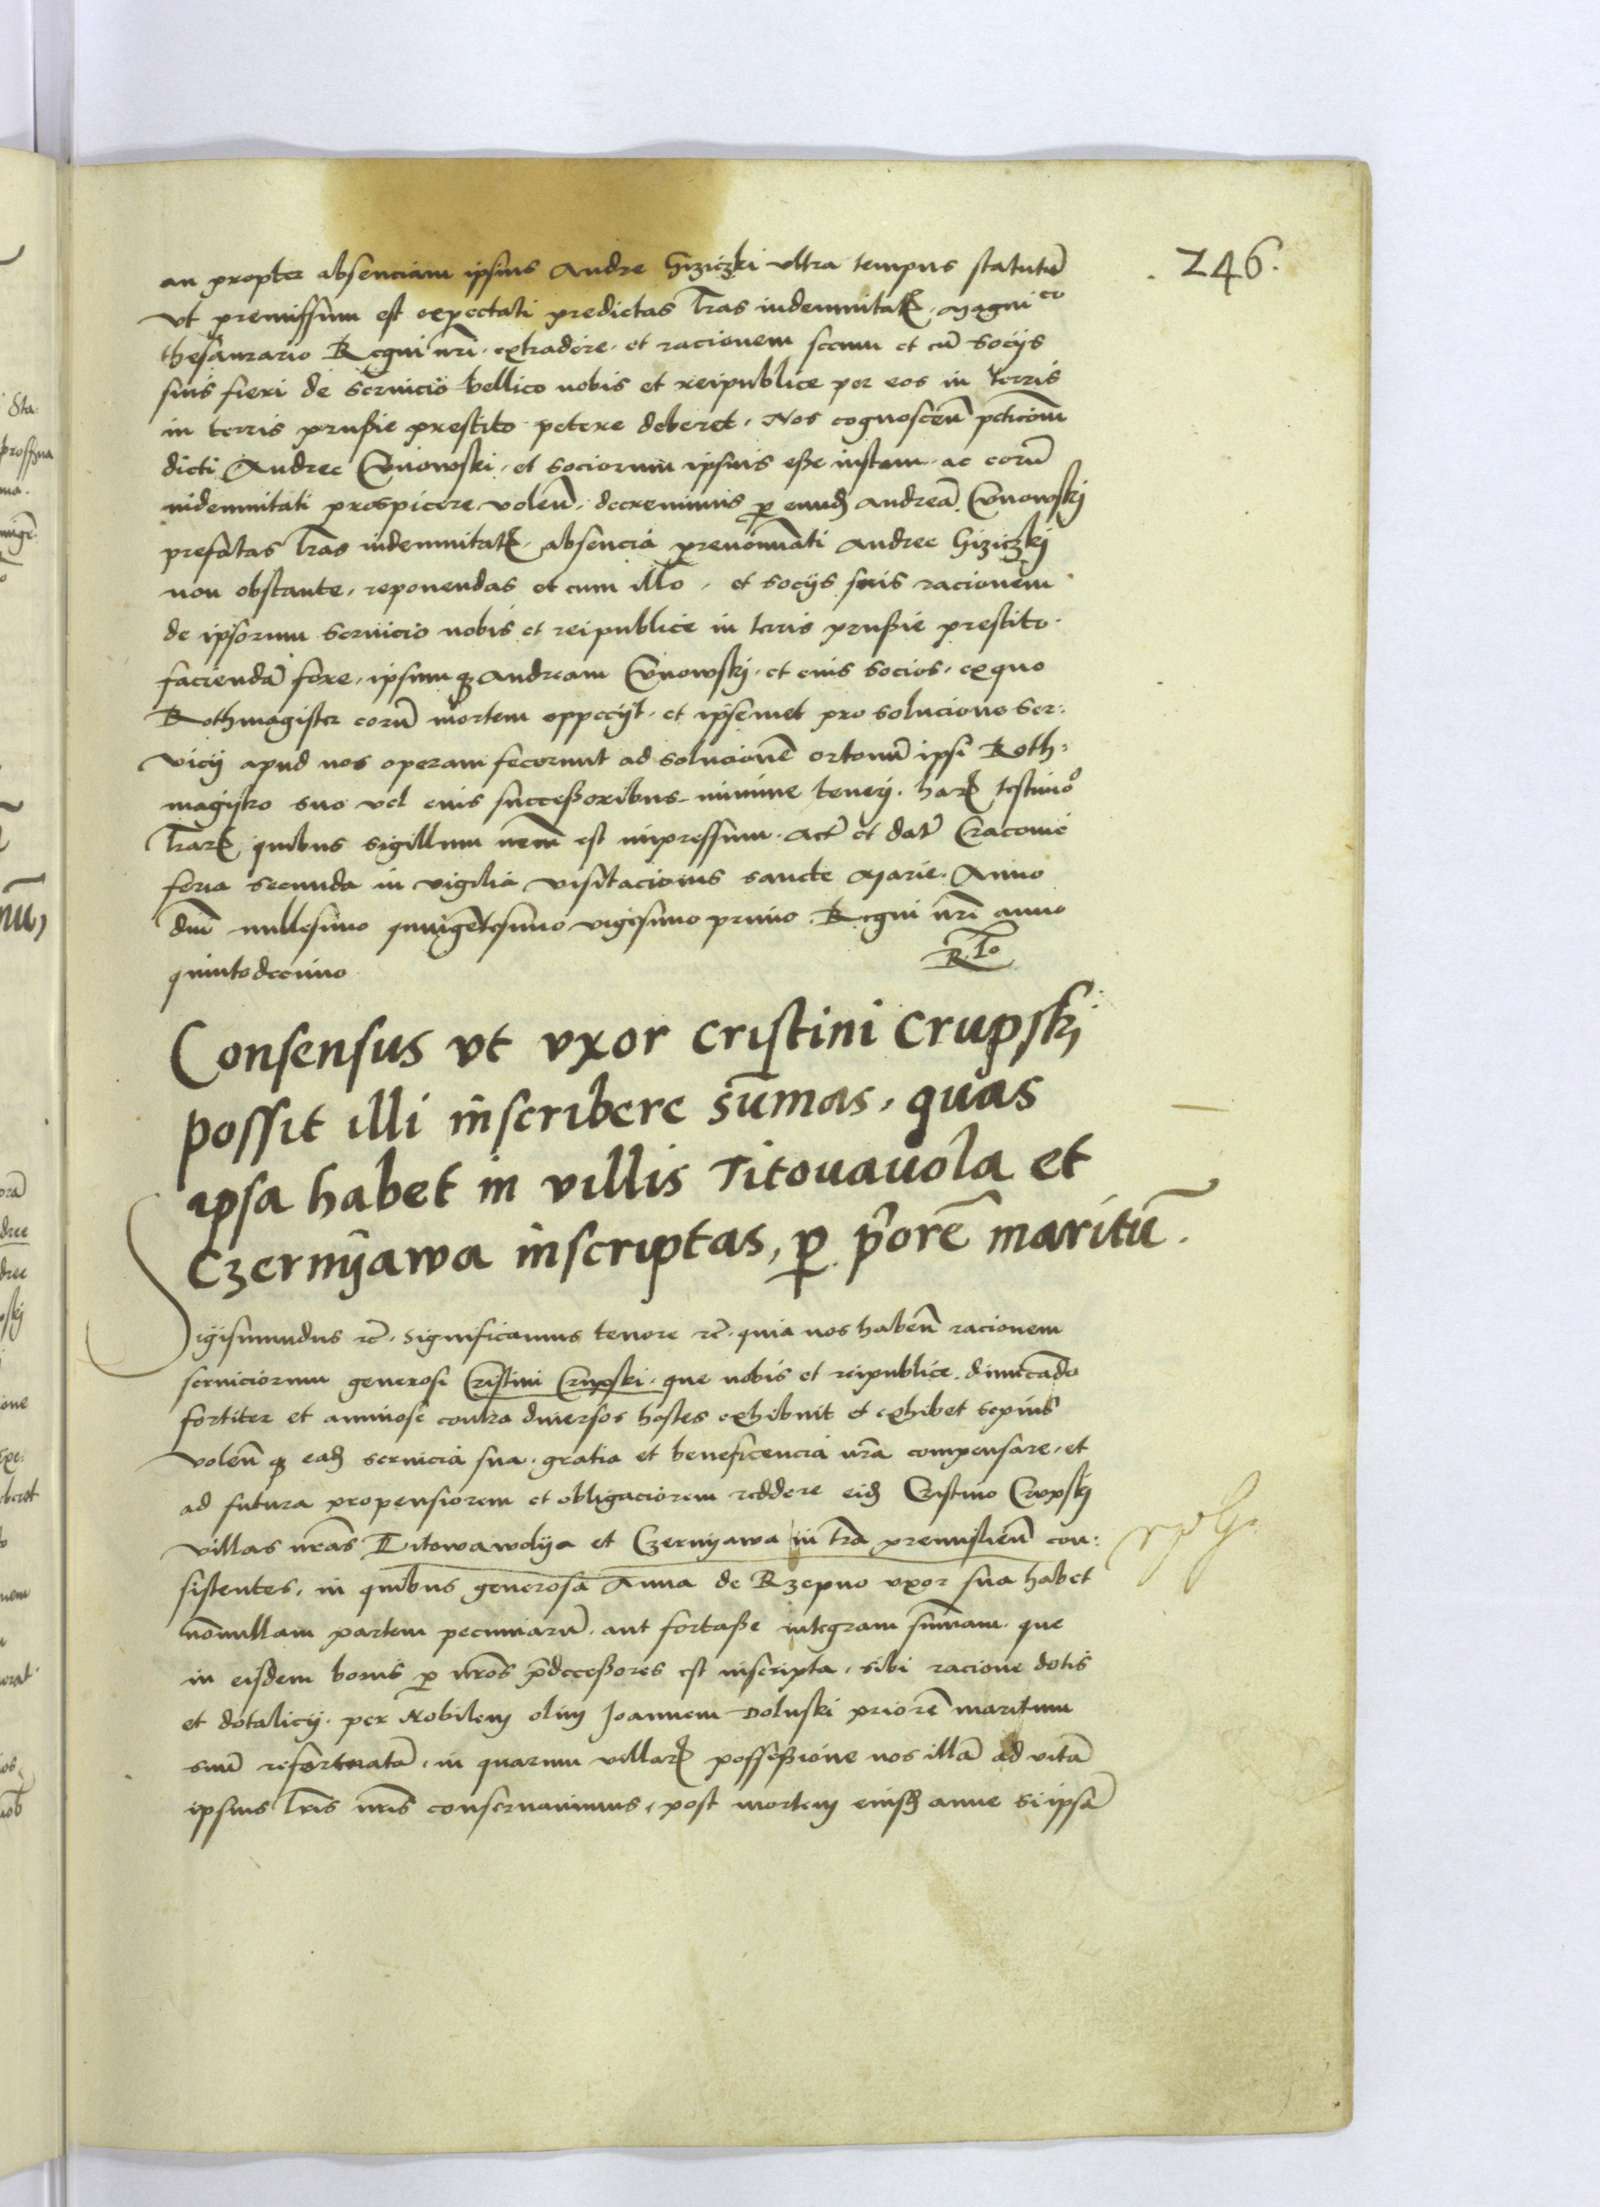 246.
an propter absenciam ipsius Andre Giziczki vltra tempus statutũ
vt premissum est expectati predictas l̃ras indemnitat. magnico
thesaurario Regni nr̃i. extradere. et racionem secum et cũ socijs
suis fieri de seruicio bellico nobis et reipublice per eos in terris
in terris prussie prestito petere deberet. Nos cognoscen̄ peticionẽ
dicti Andree Cunowski. et sociorum ipsius esse iustam. ac eorũ
indemnitati prospicere volen̄. decreuimus ꝑ eund Andreã Cunowskj
prefatas l̃ras indemnitat. absencia prenominati Andree Giziczkj
non obstante. reponendas et cum illo. et socijs suis racionem
de ipsorum seruicio nobis et reipublice in terris prussie prestito.
faciendã fore. ipsumqꝫ Andream Cunowskj. et eius socios. ex quo
Rothmagister eorũ mortem oppecijt. et ipsemet pro solucione Ser:
vicij apud nos operam fecerunt ad solucionẽ ipsi Roth:
magistro suo vel eius successoribus minime teneri. har testimo
l̃rar quibus sigillum nr̃m est impressum. Actũ et datũ Cracouie
feria secunda in vigilia visitacionis sancte Marie. Anno
dnĩ millesimo quingẽtesimo vigesimo primo. Regni nr̃i anno
quintodecimo
R. To
Consensus vt vxor Cristini Crupskj
possit illi inscribere sũmas, quas
ipsa habet in villis Titouauola et
Czernijawa inscriptas, ꝑ p̃orẽ maritũ.
Sigismundus rc̃. Significamus tenore rc̃. quia nos haben̄ racionem
seruiciorum generosi Cristini Crupski. que nobis et reipublice. dimicãdo
fortiter et animose contra diuersos hostes exhibuit et exhibet sepius
volen̄qꝫ ead seruicia sua. gratia et beneficencia nr̃a compensare. et
ad futura propensiorem et obligaciorem reddere eid Cristino Crupskj
villas nr̃as Titowawolija et Czernijawa in tr̃a premislien̄ con:
sistentes. in quibus generosa Anna de Rzepno vxor sua habet
nõnullam partem pecuniarũ. aut fortasse integram sũmam. que
in eisdem bonis ꝑ nr̃os p̃decessores est inscripta. sibi racione dotis
et dotalicij. per Nobilem olim Joannem Doluski priorẽ maritum
suũ reformatã. in quarum villar possessione nos illã ad vitã
ipsius l̃ris nr̃is conseruauimus. post mortem eiusd anne si ipsã